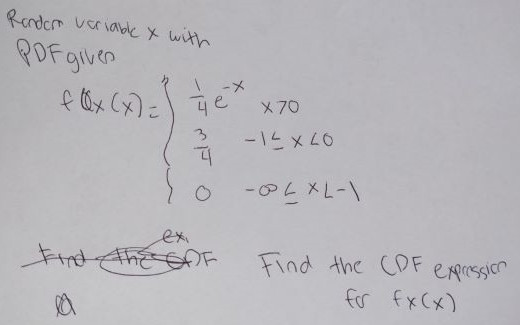 Random variable x with
PDF given
fx(x) = { 1/4 e^-x x>0
3/4 -1≤ x<0
0 -∞ ≤ x<-1
ex.
Find the CDF Find the CDF expression
for fx(x)